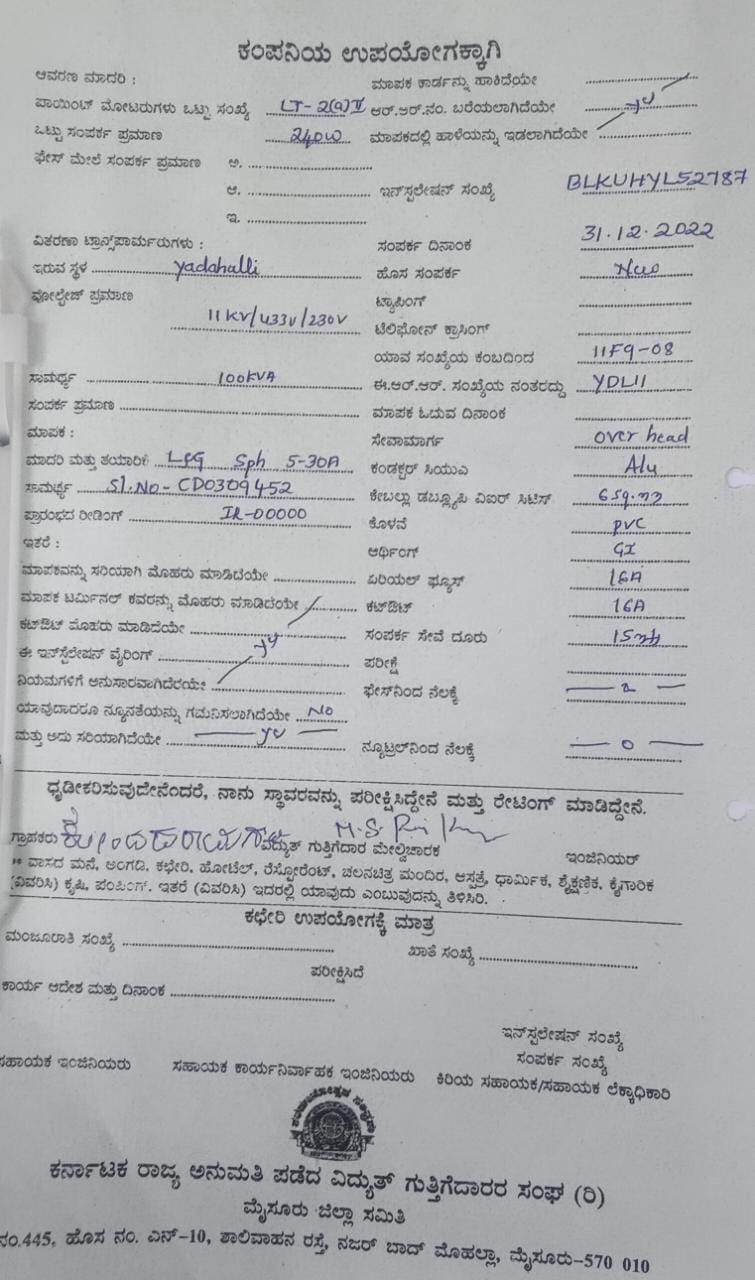 ಕಂಪನಿಯ ಉಪಯೋಗಕ್ಕಾಗಿ
ಆವರಣ ಮಾದರಿ : ಮಾಪಕ ಕಾರ್ಡನ್ನು ಹಾಕಿದೆಯೇ
ಪಾಯಿಂಟ್ ಮೋಟರುಗಳು ಒಟ್ಟು ಸಂಖ್ಯೆ LT-2(a)II ಆರ್.ಆರ್.ನಂ. ಬರೆಯಲಾಗಿದೆಯೇ
ಒಟ್ಟು ಸಂಪರ್ಕ ಪ್ರಮಾಣ 240W ಮಾಪಕದಲ್ಲಿ ಹಾಳೆಯನ್ನು ಇಡಲಾಗಿದೆಯೇ
ಫೇಸ್ ಮೇಲೆ ಸಂಪರ್ಕ ಪ್ರಮಾಣ ಅ.
ಆ. ಇನ್‌ಸ್ಟಲೇಷನ್ ಸಂಖ್ಯೆ BLKUHYL52787
ಇ.
ವಿತರಣಾ ಟ್ರಾನ್ಸ್‌ಪಾರ್ಮರುಗಳು : ಸಂಪರ್ಕ ದಿನಾಂಕ 31.12.2022
ಇರುವ ಸ್ಥಳ Yadahalli ಹೊಸ ಸಂಪರ್ಕ
ವೋಲ್ಟೇಜ್ ಪ್ರಮಾಣ 11KV/433V/230V ಟ್ಯಾಪಿಂಗ್
ಟೆಲಿಫೋನ್ ಕ್ರಾಸಿಂಗ್
ಯಾವ ಸಂಖ್ಯೆಯ ಕಂಬದಿಂದ 11F9-08
ಸಾಮರ್ಥ್ಯ 100KVA ಈ.ಆರ್.ಆರ್. ಸಂಖ್ಯೆಯ ನಂತರದ್ದು YDL11
ಸಂಪರ್ಕ ಪ್ರಮಾಣ ಮಾಪಕ ಓದುವ ದಿನಾಂಕ
ಮಾಪಕ : ಸೇವಾಮಾರ್ಗ over head
ಮಾದರಿ ಮತ್ತು ತಯಾರಿಕೆ L&G Sph 5-30A ಕಂಡಕ್ಟರ್ ಸಿಯುಎ Alu
ಸಾಮರ್ಥ್ಯ Sl.No-CD0309452 ಕೇಬಲ್ಲು ಡಬ್ಲ್ಯೂಪಿ ವಿಐರ್ ಸಿಟಿಸ್ 6sq.mm
ಪ್ರಾರಂಭದ ರೀಡಿಂಗ್ IR-00000 ಕೊಳವೆ PVC
ಇತರೆ : ಆರ್ಥಿಂಗ್ GI
ಮಾಪಕವನ್ನು ಸರಿಯಾಗಿ ಮೊಹರು ಮಾಡಿದೆಯೇ ಏರಿಯಲ್ ಫ್ಯೂಸ್ 16A
ಮಾಪಕ ಟರ್ಮಿನಲ್ ಕವರನ್ನು ಮೊಹರು ಮಾಡಿದೆಯೇ ಕಟ್‌ಔಟ್ 16A
ಕಟ್‌ಔಟ್ ಮೊಹರು ಮಾಡಿದೆಯೇ ಸಂಪರ್ಕ ಸೇವೆ ದೂರು
ಈ ಇನ್‌ಸ್ಟಲೇಷನ್ ವೈರಿಂಗ್ ಪರೀಕ್ಷೆ
ನಿಯಮಗಳಿಗೆ ಅನುಸಾರವಾಗಿದೆರಯೇ ಫೇಸ್‌ನಿಂದ ನೆಲಕ್ಕೆ
ಯಾವುದಾದರೂ ನ್ಯೂನತೆಯನ್ನು ಗಮನಿಸಲಾಗಿದೆಯೇ NO
ಮತ್ತು ಅದು ಸರಿಯಾಗಿದೆಯೇ ನ್ಯೂಟ್ರಲ್‌ನಿಂದ ನೆಲಕ್ಕೆ — 0 —
ಧೃಡೀಕರಿಸುವುದೇನೆಂದರೆ, ನಾನು ಸ್ಥಾವರವನ್ನು ಪರೀಕ್ಷಿಸಿದ್ದೇನೆ ಮತ್ತು ರೇಟಿಂಗ್ ಮಾಡಿದ್ದೇನೆ.
ಗ್ರಾಹಕರು ವಿದ್ಯುತ್ ಗುತ್ತಿಗೆದಾರ ಮೇಲ್ವಿಚಾರಕ ಇಂಜಿನಿಯರ್
** ವಾಸದ ಮನೆ, ಅಂಗಡಿ, ಕಛೇರಿ, ಹೋಟೆಲ್, ರೆಸ್ಟೋರೆಂಟ್, ಚಲನಚಿತ್ರ ಮಂದಿರ, ಆಸ್ಪತ್ರೆ, ಧಾರ್ಮಿಕ, ಶೈಕ್ಷಣಿಕ, ಕೈಗಾರಿಕ
(ವಿವರಿಸಿ) ಕೃಷಿ, ಪಂಪಿಂಗ್. ಇತರೆ (ವಿವರಿಸಿ) ಇದರಲ್ಲಿ ಯಾವುದು ಎಂಬುವುದನ್ನು ತಿಳಿಸಿರಿ.
ಕಛೇರಿ ಉಪಯೋಗಕ್ಕೆ ಮಾತ್ರ
ಮಂಜೂರಾತಿ ಸಂಖ್ಯೆ ಖಾತೆ ಸಂಖ್ಯೆ
ಪರೀಕ್ಷಿಸಿದೆ
ಕಾರ್ಯ ಆದೇಶ ಮತ್ತು ದಿನಾಂಕ
ಇನ್‌ಸ್ಟಲೇಷನ್ ಸಂಖ್ಯೆ
ಸಂಪರ್ಕ ಸಂಖ್ಯೆ
ಸಹಾಯಕ ಇಂಜಿನಿಯರು ಸಹಾಯಕ ಕಾರ್ಯನಿರ್ವಾಹಕ ಇಂಜಿನಿಯರು ಕಿರಿಯ ಸಹಾಯಕ/ಸಹಾಯಕ ಲೆಕ್ಕಾಧಿಕಾರಿ
ಕರ್ನಾಟಕ ರಾಜ್ಯ ಅನುಮತಿ ಪಡೆದ ವಿದ್ಯುತ್ ಗುತ್ತಿಗೆದಾರರ ಸಂಘ (ರಿ)
ಮೈಸೂರು ಜಿಲ್ಲಾ ಸಮಿತಿ
ನಂ.445, ಹೊಸ ನಂ. ಎನ್-10, ಶಾಲಿವಾಹನ ರಸ್ತೆ, ನಜರ್ ಬಾದ್ ಮೊಹಲ್ಲಾ, ಮೈಸೂರು-570 010